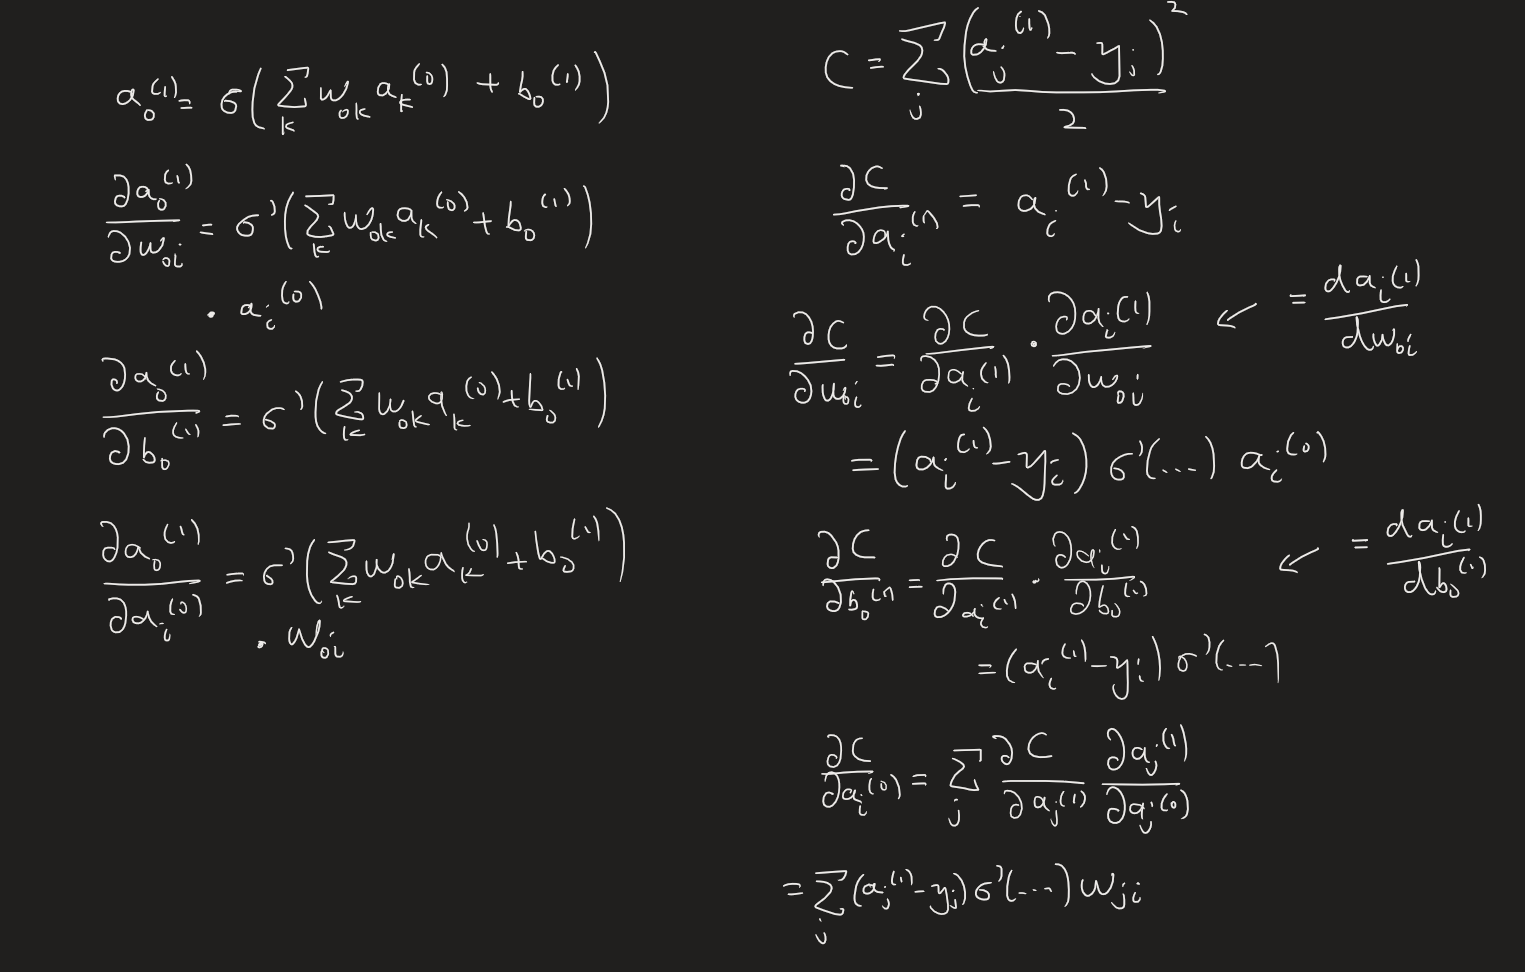 a₀⁽¹⁾ = σ(∑ₖ w₀ₖ aₖ⁽⁰⁾ + b₀⁽¹⁾)
∂a₀⁽¹⁾/∂w₀ᵢ = σ'(∑ₖ w₀ₖ aₖ⁽⁰⁾ + b₀⁽¹⁾)
· aᵢ⁽⁰⁾
∂a₀⁽¹⁾/∂b₀⁽¹⁾ = σ'(∑ₖ w₀ₖ aₖ⁽⁰⁾ + b₀⁽¹⁾)
∂a₀⁽¹⁾/∂aᵢ⁽⁰⁾ = σ'(∑ₖ w₀ₖ aₖ⁽⁰⁾ + b₀⁽¹⁾)
· w₀ᵢ
C = ∑ⱼ (aⱼ⁽¹⁾ - yⱼ)²/2
∂C/∂aᵢ⁽¹⁾ = aᵢ⁽¹⁾ - yᵢ
∂C/∂w₀ᵢ = ∂C/∂aᵢ⁽¹⁾ · ∂aᵢ⁽¹⁾/∂w₀ᵢ ↙ = daᵢ⁽¹⁾/dw₀ᵢ
= (aᵢ⁽¹⁾ - yᵢ) σ'(...) aᵢ⁽⁰⁾
∂C/∂b₀⁽¹⁾ = ∂C/∂aᵢ⁽¹⁾ · ∂aᵢ⁽¹⁾/∂b₀⁽¹⁾ ↙ = daᵢ⁽¹⁾/db₀⁽¹⁾
= (aᵢ⁽¹⁾ - yᵢ) σ'(...)
∂C/∂aᵢ⁽⁰⁾ = ∑ⱼ ∂C/∂aⱼ⁽¹⁾ ∂aⱼ⁽¹⁾/∂aⱼ⁽⁰⁾
= ∑ⱼ (aⱼ⁽¹⁾ - yⱼ) σ'(...) wⱼᵢ